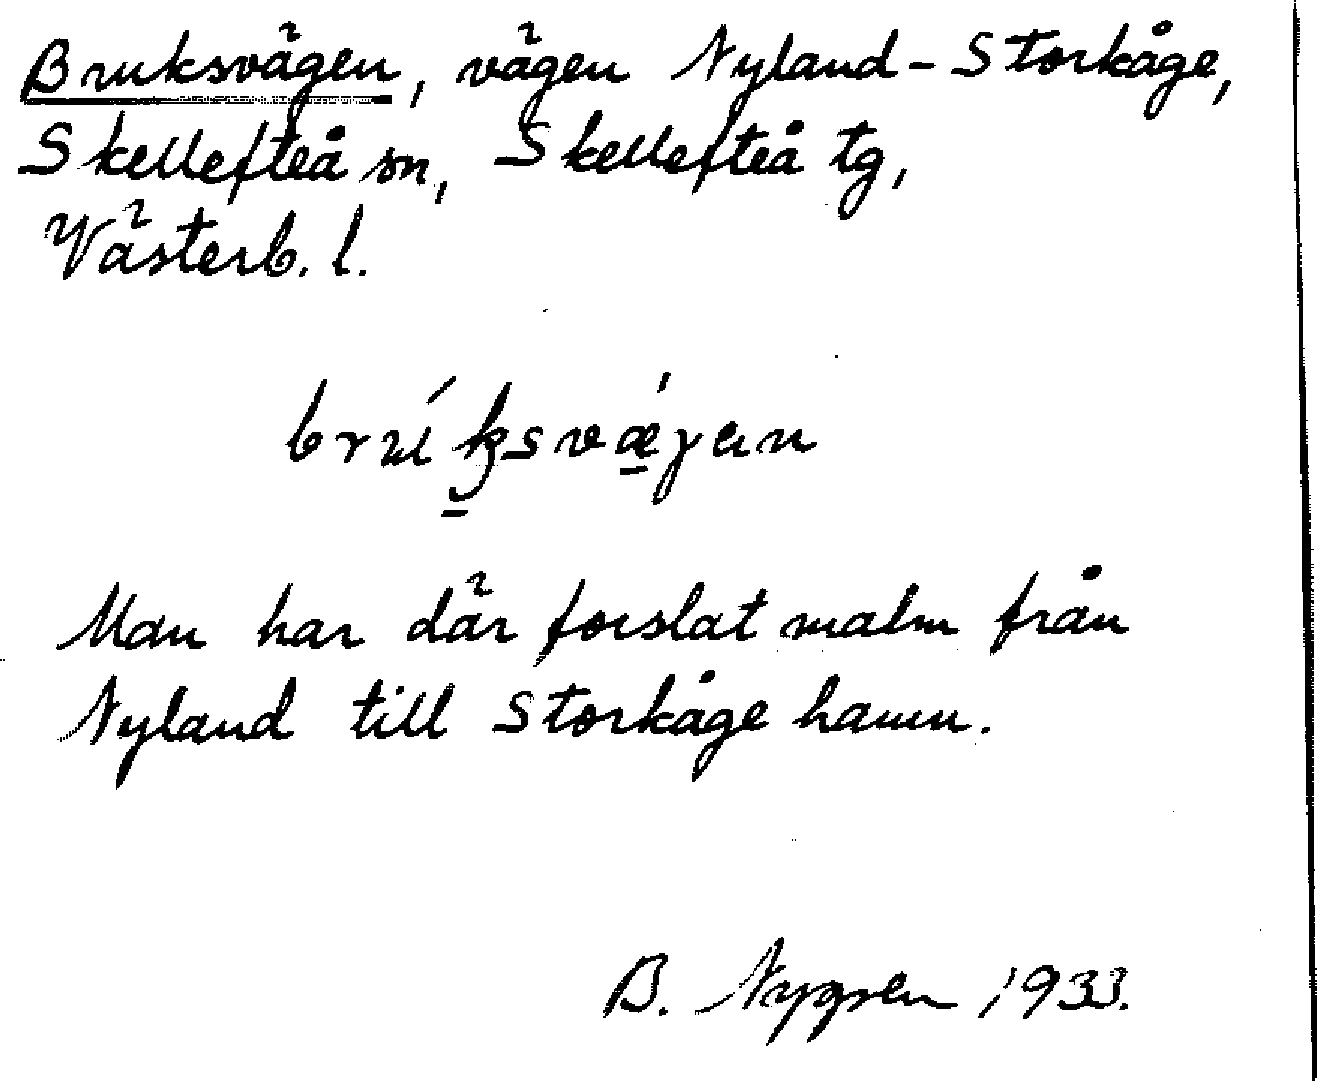 Bruksvägen, vägen Nyland - Storkåge,
Skellefteå sn, Skellefteå tg,
Västerb. l.
Man har där forslat malm från
Nyland till Storkåge hamn.
B. Nygren 1933.